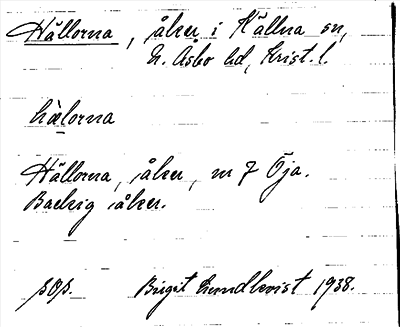 Hällorna, åker i Källna sn,
N. Åsbo hd, Krist. l.
hälorna
Hällorna, åker, nr 7 Öja.
Backig åker.
Birgit Lundkvist 1938.